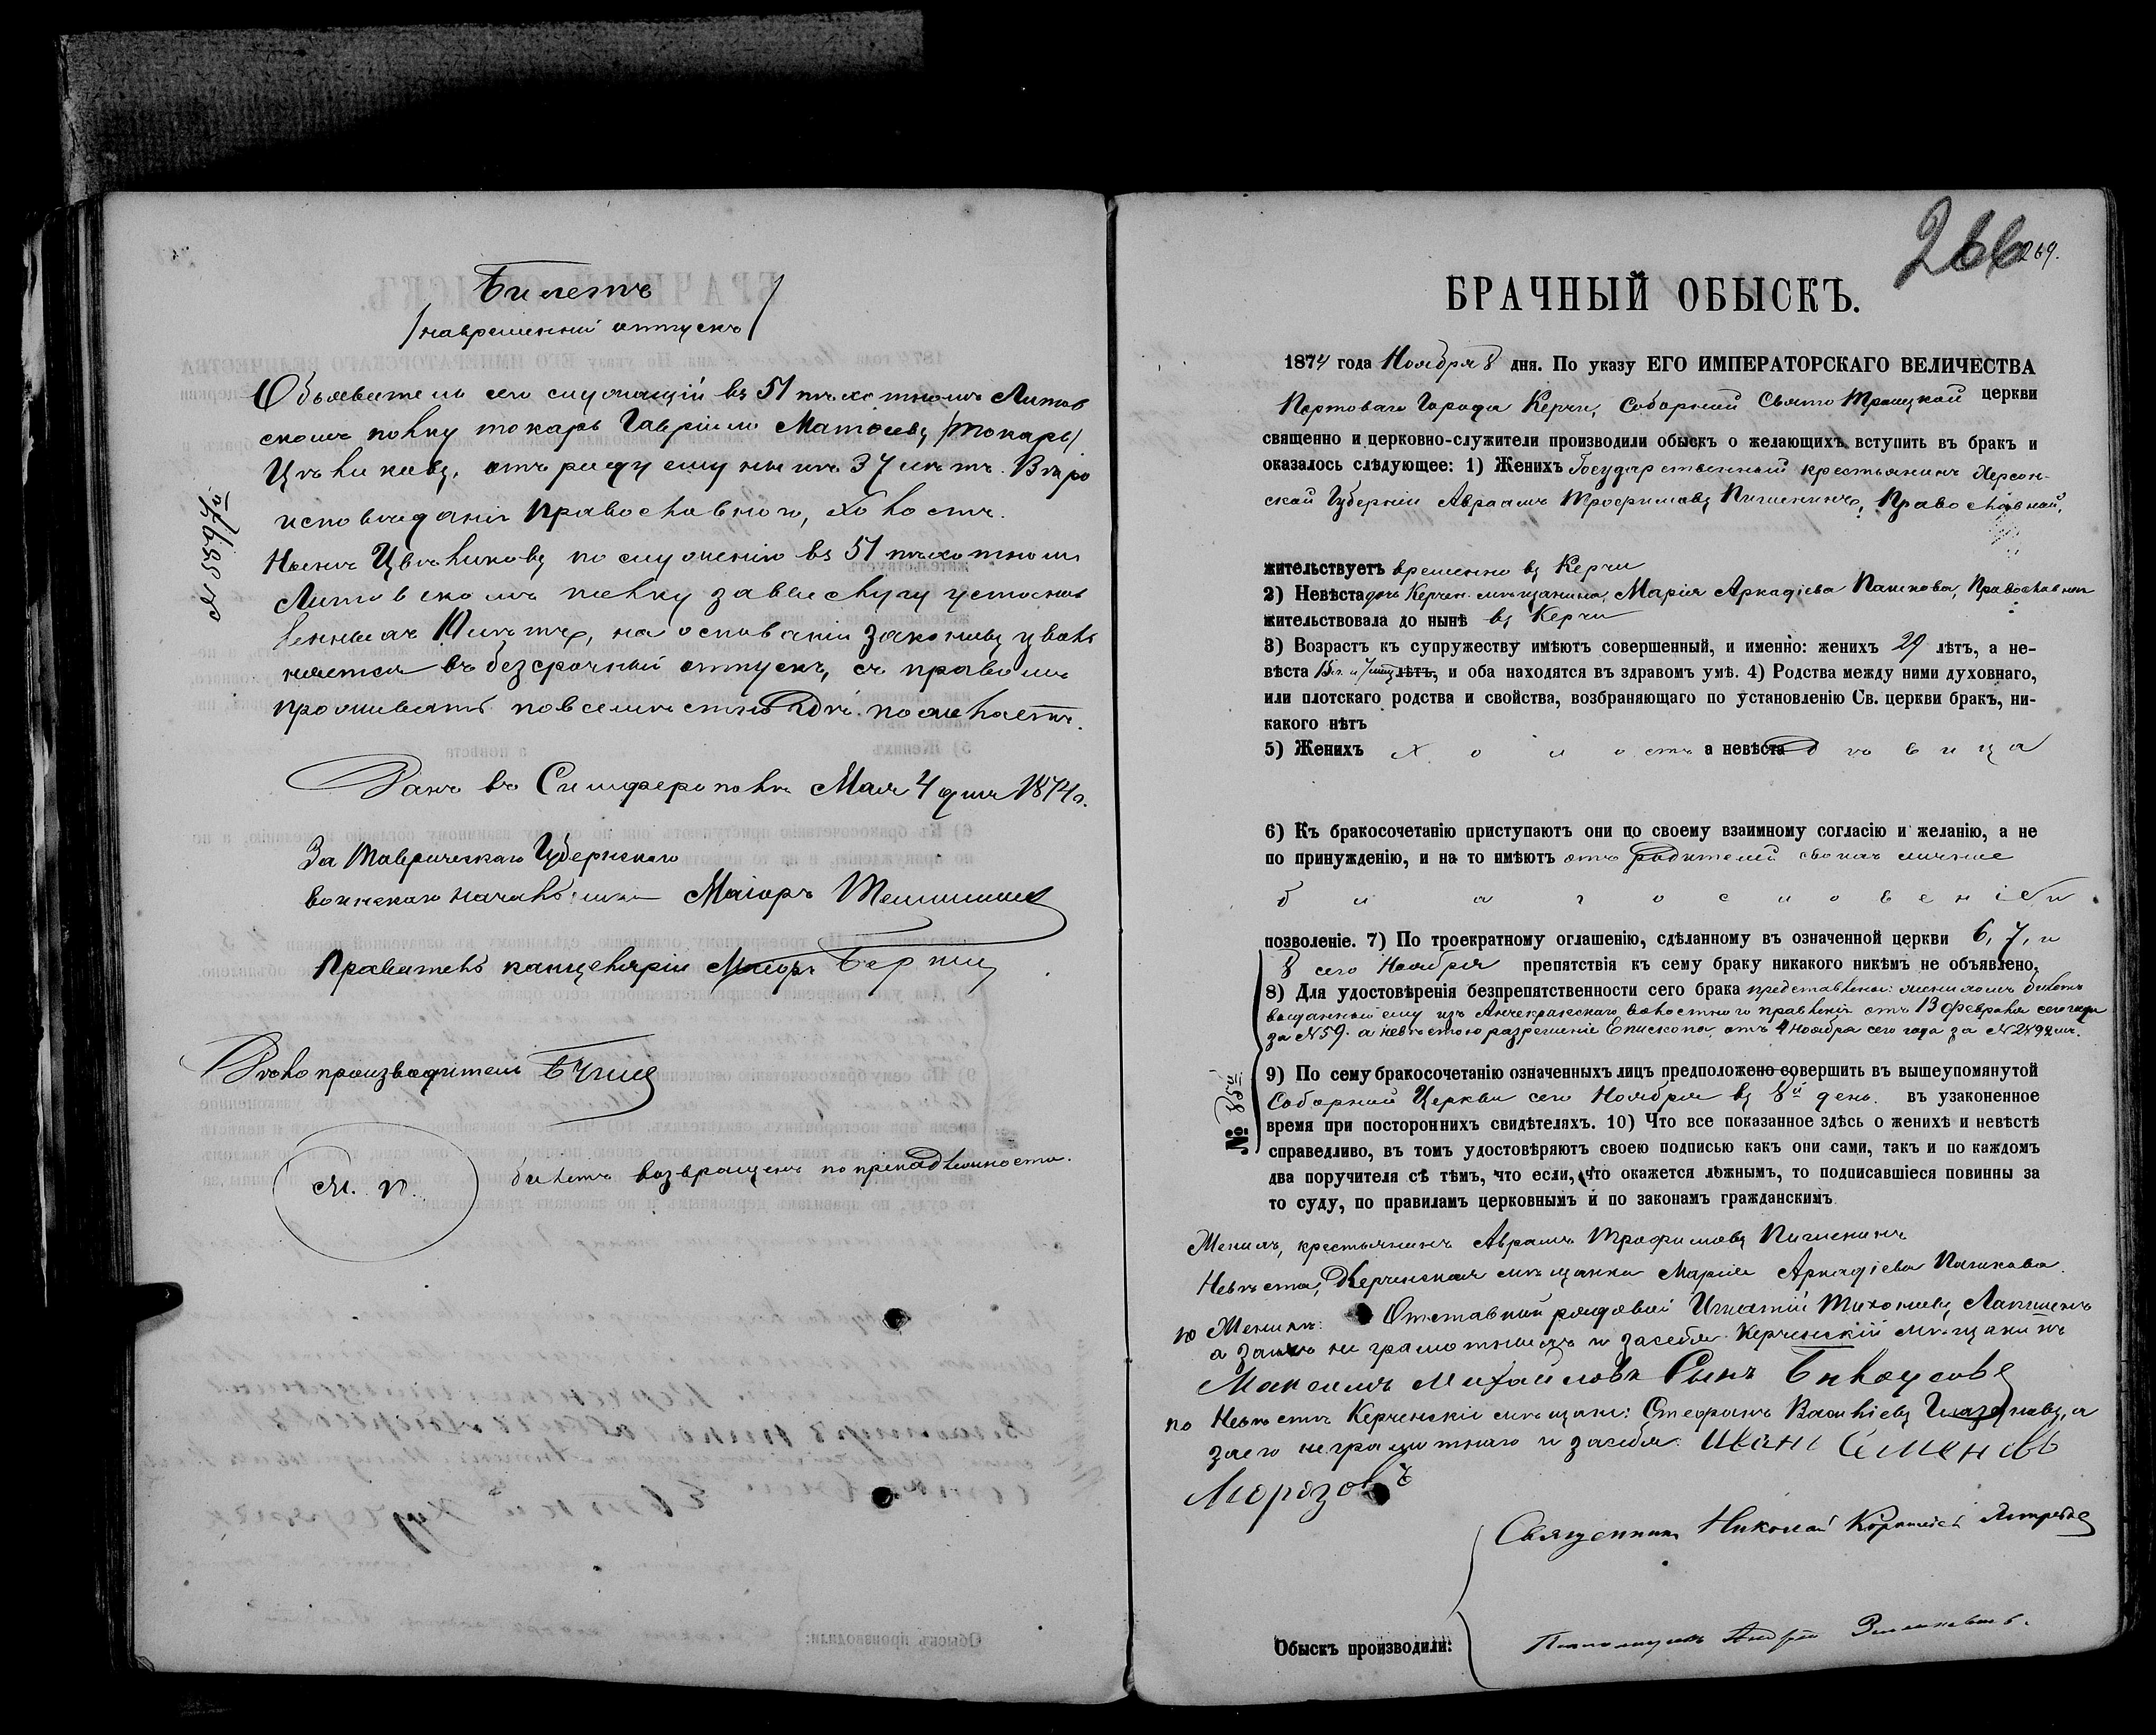 Билетъ
/на временный отпускъ/
Объявитель сего служащій въ 51 пѣхотномъ Литов
скомъ полку токарь Гавріилъ Матвѣевъ /токарь/
Цѣликовъ, отъ роду ему нынѣ 37 лѣтъ. Вѣро
исповѣданія Православного, холостъ.
Нынѣ Цѣликовъ по служенію въ 51 пѣхотномъ
Литовскомъ полку за выслугу установ
леннымъ лѣтъ, на основаніи законовъ уволь
няется въ безсрочный отпускъ, съ правомъ
проживать повсемѣстно гдѣ пожелаетъ.
Данъ въ Симферополѣ Мая 4 дня 1874 г.
За Таврическаго Губернскаго
воинскаго начальника Маіоръ
Правитель канцеляріи
Дѣлопроизводитель
М. П.
билетъ возвращенъ по принадлежности.
266
269.
БРАЧНЫЙ ОБЫСКЪ.
1874 года Ноября 8 дня. По указу ЕГО ИМПЕРАТОРСКАГО ВЕЛИЧЕСТВА
Портоваго Города Керчи, Соборной Свято Троицкой церкви
священно и церковно-служители производили обыскъ о желающихъ вступить въ бракъ и
оказалось слѣдующее: 1) Женихъ Государственный крестьянинъ Херсон-
ской Губерніи Авраамъ Трофимовъ Пигиенинъ, Православный,
жительствуетъ временно въ Керчи
2) Невѣста дочь Керчен. мѣщанина, Марія Аркадіева Пашкова, Православная
жительствовала до нынѣ въ Керчи
3) Возрастъ къ супружеству имѣютъ совершенный, и именно: женихъ 29 лѣтъ, а не-
вѣста 15 л. и 7 мѣц лѣтъ, и оба находятся въ здравомъ умѣ. 4) Родства между ними духовнаго,
или плотскаго родства и свойства, возбраняющаго по установленію Св. церкви бракъ, ни-
какого нѣтъ
5) Женихъ холостъ а невѣста дѣвица
6) Къ бракосочетанію приступаютъ они по своему взаимному согласію и желанію, а не
по принужденію, и на то имѣютъ отъ родителей своихъ личные
благословеніе и
позволеніе. 7) По троекратному оглашенію, сдѣланному въ означенной церкви 6, 7, и
8 сего Ноября препятствія къ сему браку никакого никѣмъ не объявлено.
8) Для удостовѣренія безпрепятственности сего брака представлены: женихомъ билетъ
выданный ему изъ Анчекракскаго волостного правленія отъ 13 Февраля сего года
за №59. а невѣстою разрешеніе Епископа, отъ 4 Ноября сего года за №2892 мъ.
9) По сему бракосочетанію означенныхъ лицъ предположено совершить въ вышеупомянутой
Соборной Церкви сего Ноября въ 8й день. въ узаконенное
время при постороннихъ свидѣтеляхъ. 10) Что все показанное здѣсь о женихѣ и невѣстѣ
справедливо, въ томъ удостовѣряютъ своею подписью какъ они сами, такъ и по каждомъ
два поручителя съ тѣмъ, что если, что окажется ложнымъ, то подписавшіеся повинны за
то суду, по правиламъ церковнымъ и по законамъ гражданскимъ
№ 85й
Женихъ, крестьянинъ Авраамъ Трофимовъ Пигиенинъ
Невѣста, Керченская мѣщанка Марія Аркадіева Пашкова.
по Женихѣ: Отставной рядовой Игнатій Тихоновъ Лапшенъ
а за нихъ неграмотныхъ и за себя Керченскій мѣщанинъ
Максимъ Михайловъ Сынъ Бѣлоусовъ
по Невѣстѣ Керченскіе мѣщане: Стефанъ Васильевъ Глазуновъ, а
за его неграмотнаго и за себя: Иванъ Семеновъ
Морозовъ
Священникъ Николай
Обыскъ производили:
Андрей